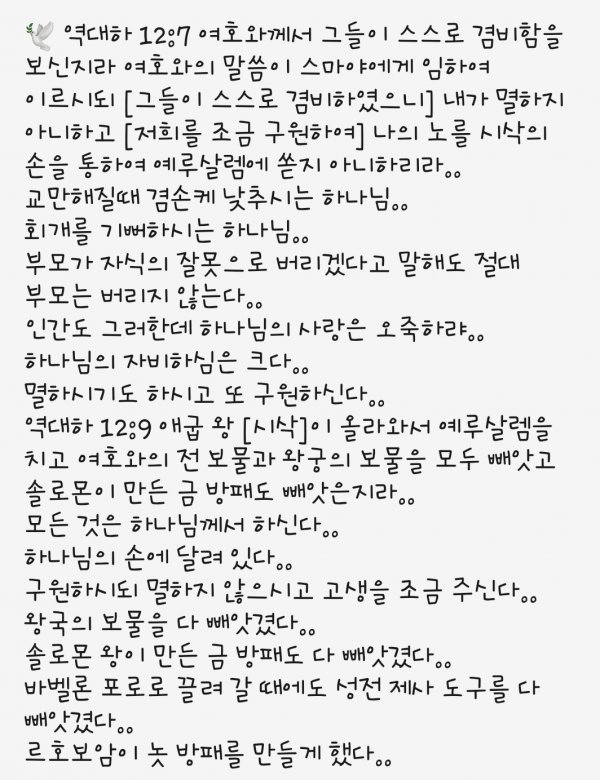 🕊 역대하 12:7 여호와께서 그들이 스스로 겸비함을
보신지라 여호와의 말씀이 스마야에게 임하여
이르시되 [그들이 스스로 겸비하였으니] 내가 멸하지
아니하고 [저희를 조금 구원하여] 나의 노를 시삭의
손을 통하여 예루살렘에 쏟지 아니하리라..
교만해질때 겸손케 낮추시는 하나님..
회개를 기뻐하시는 하나님..
부모가 자식의 잘못으로 버리겠다고 말해도 절대
부모는 버리지 않는다..
인간도 그러한데 하나님의 사랑은 오죽하랴..
하나님의 자비하심은 크다..
멸하시기도 하시고 또 구원하신다..
역대하 12:9 애굽 왕 [시삭]이 올라와서 예루살렘을
치고 여호와의 전 보물과 왕궁의 보물을 모두 빼앗고
솔로몬이 만든 금 방패도 빼앗은지라..
모든 것은 하나님께서 하신다..
하나님의 손에 달려 있다..
구원하시되 멸하지 않으시고 고생을 조금 주신다..
왕국의 보물을 다 빼앗겼다..
솔로몬 왕이 만든 금 방패도 다 빼앗겼다..
바벨론 포로로 끌려 갈 때에도 성전 제사 도구를 다
빼앗겼다..
르호보암이 놋 방패를 만들게 했다..